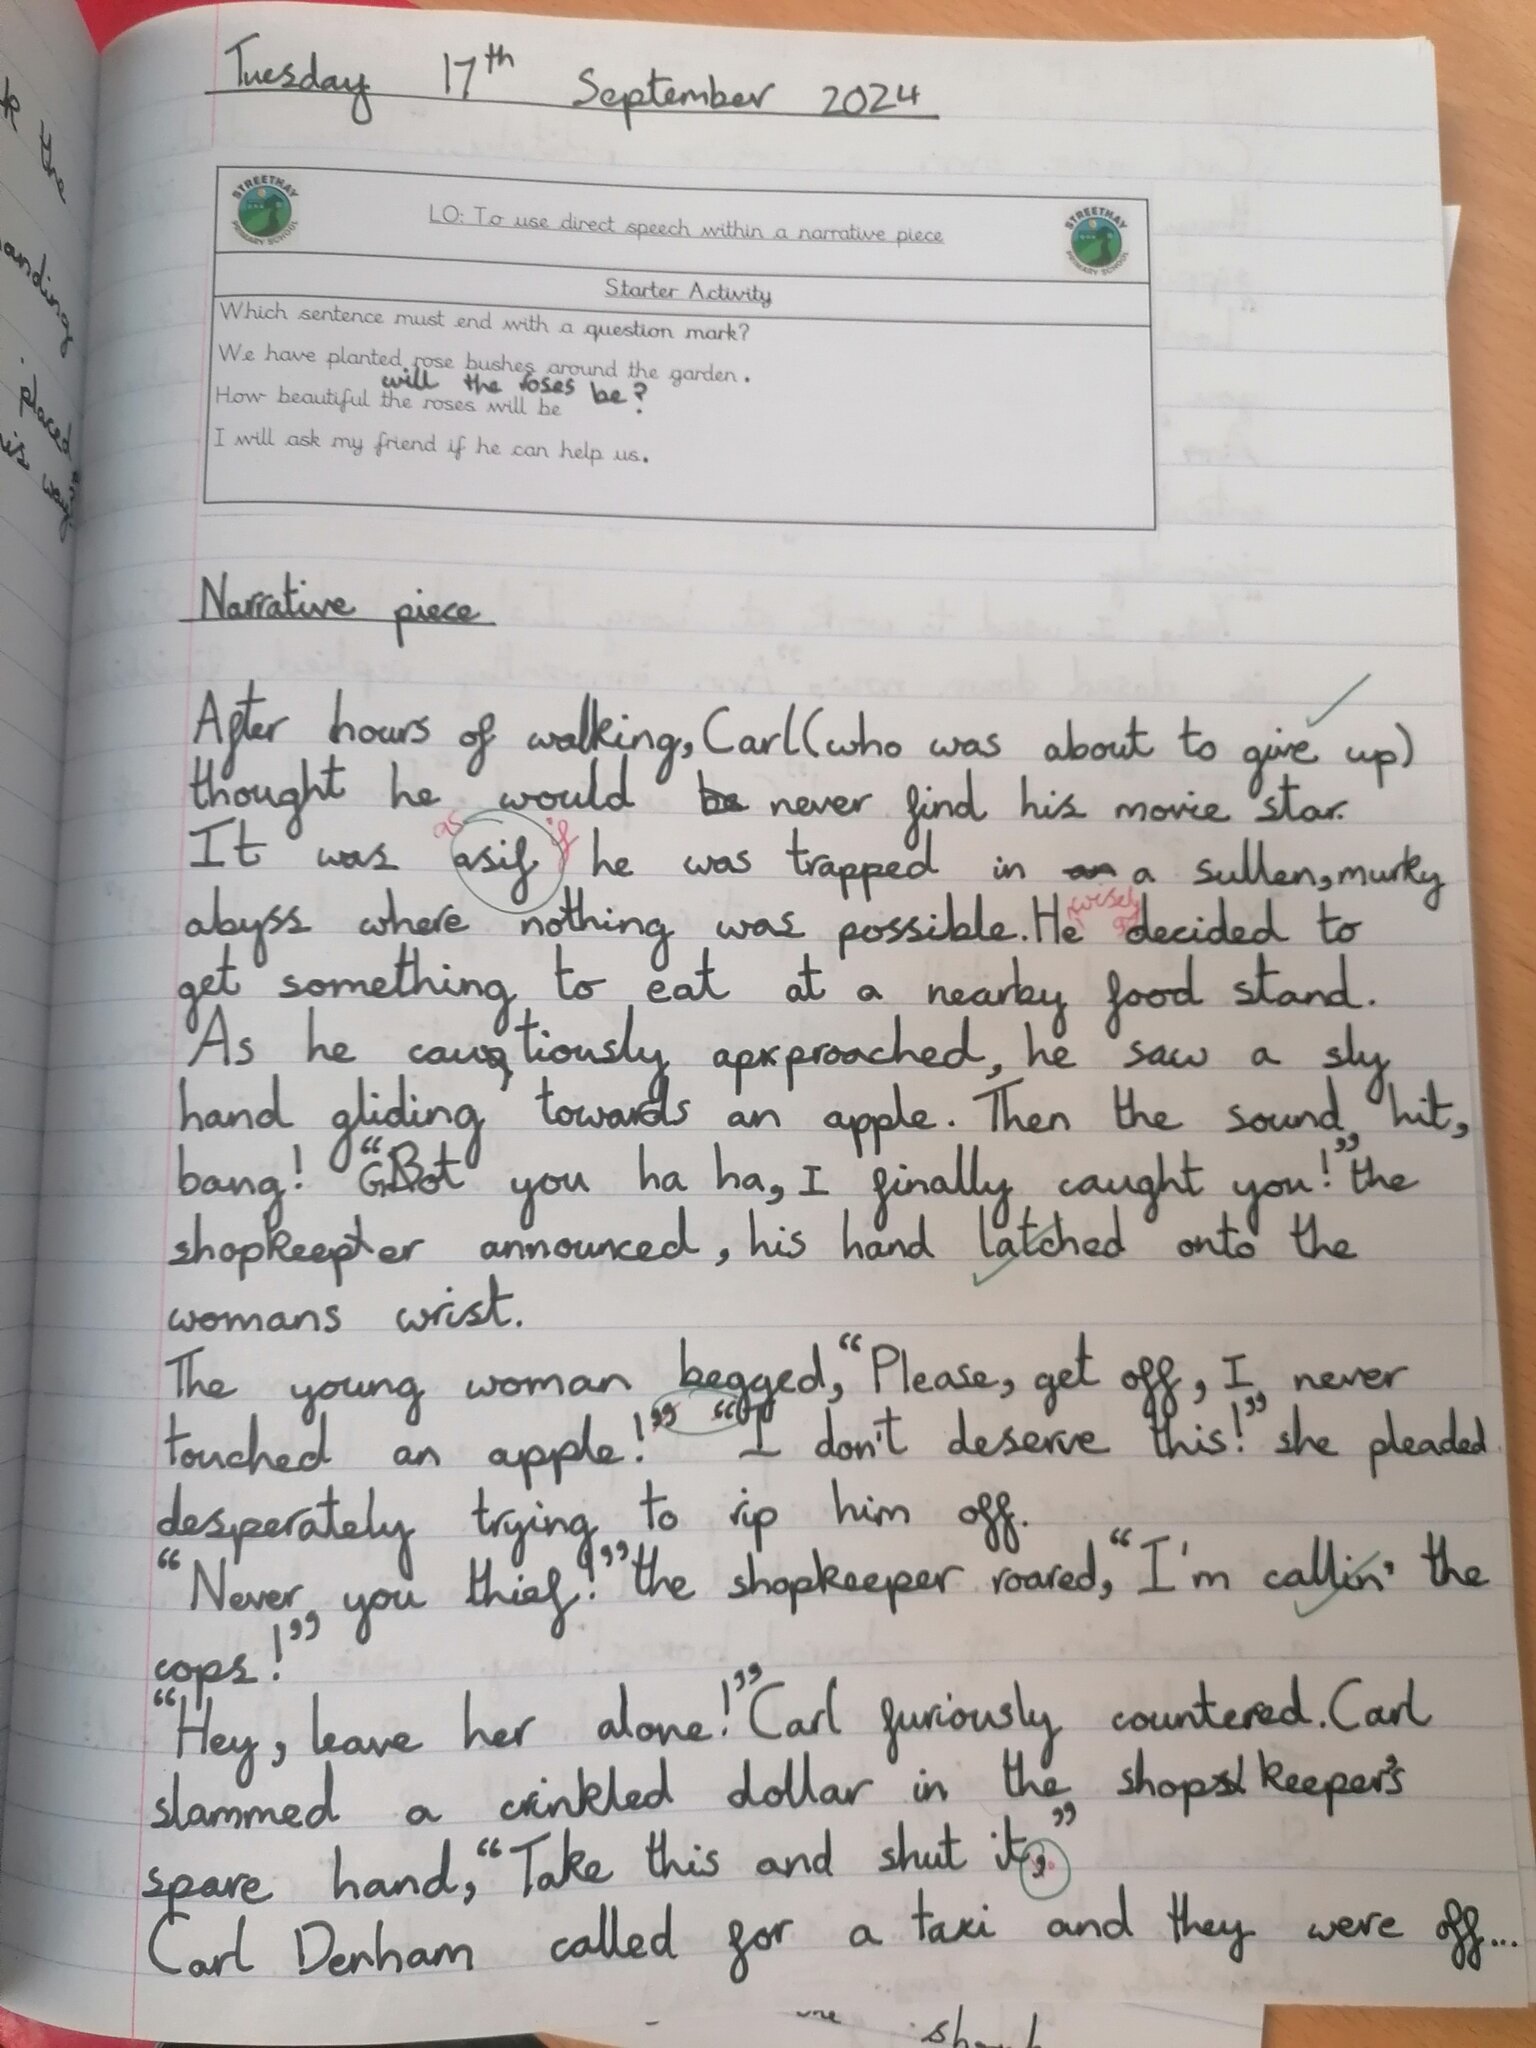 k the
anding
placed
is way
Tuesday 17th September 2024
STREETHAY PRIMARY SCHOOL
LO: To use direct speech within a narrative piece
STREETHAY PRIMARY SCHOOL
Starter Activity
Which sentence must end with a question mark?
We have planted rose bushes around the garden.
will the roses be?
How beautiful the roses will be
I will ask my friend if he can help us.
Narrative piece
After hours of walking, Carl (who was about to give up)
thought he would be never find his movie star.
as if
It was asif he was trapped in an a sullen, murky
wisely
abyss where nothing was possible. He decided to
get something to eat at a nearby food stand.
As he cautiously approached, he saw a sly
hand gliding towards an apple. Then the sound hit,
bang! "Got you ha ha, I finally caught you!" the
shopkeeper announced, his hand latched onto the
womans wrist.
The young woman begged, "Please, get off, I never
touched an apple!" "I don't deserve this!" she pleaded
desperately trying to rip him off.
"Never, you thief!" the shopkeeper roared, "I'm callin' the
cops!"
"Hey, leave her alone!" Carl furiously countered. Carl
slammed a crinkled dollar in the shopkeeper's
spare hand, "Take this and shut it,"
Carl Denham called for a taxi and they were off...